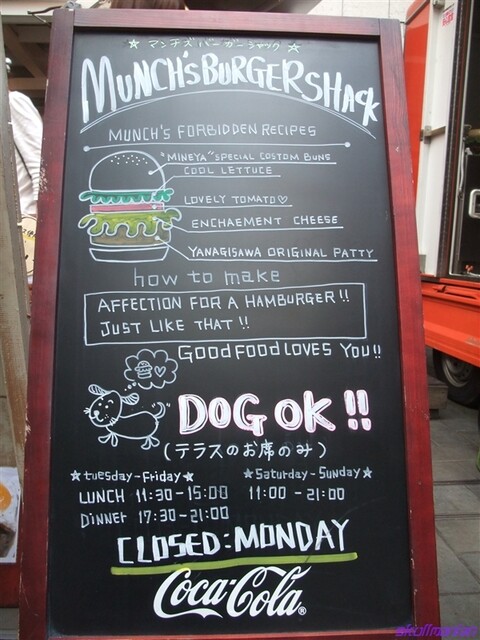 ☆ マンチズバーガーシャック ☆
MUNCH'S BURGER SHACK
MUNCH'S FORBIDDEN RECIPES
"MINEYA" SPECIAL COSTOM BUNS
COOL LETTUCE
LOVELY TOMATO♡
ENCHAEMENT CHEESE
YANAGISAWA ORIGINAL PATTY
how to make
AFFECTION FOR A HAMBURGER!!
JUST LIKE THAT!!
GOOD FOOD LOVES YOU!!
DOG OK!!
(テラスのお席のみ)
★tuesday-Friday★ ★Saturday-Sunday★
LUNCH 11:30-15:00 11:00-21:00
DINNER 17:30-21:00
CLOSED:MONDAY
Coca-Cola®